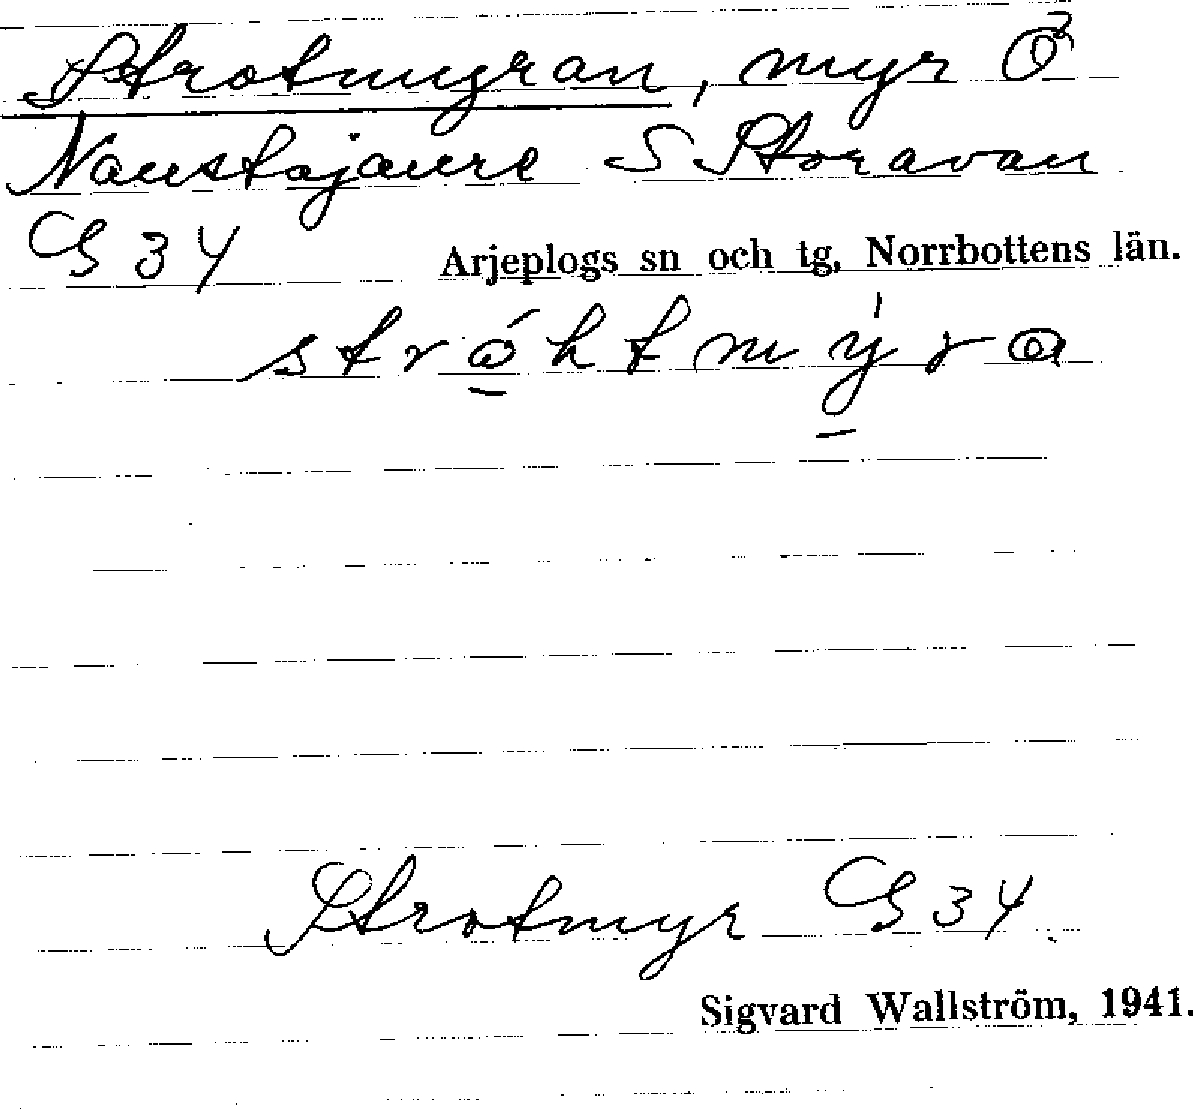 Strotmyran, myr Ö
Naustajaure S Storavan
GS 34 Arjeplogs sn och tg, Norrbottens län.
stróhtmýra
Strotmyr GS 34.
Sigvard Wallström, 1941.